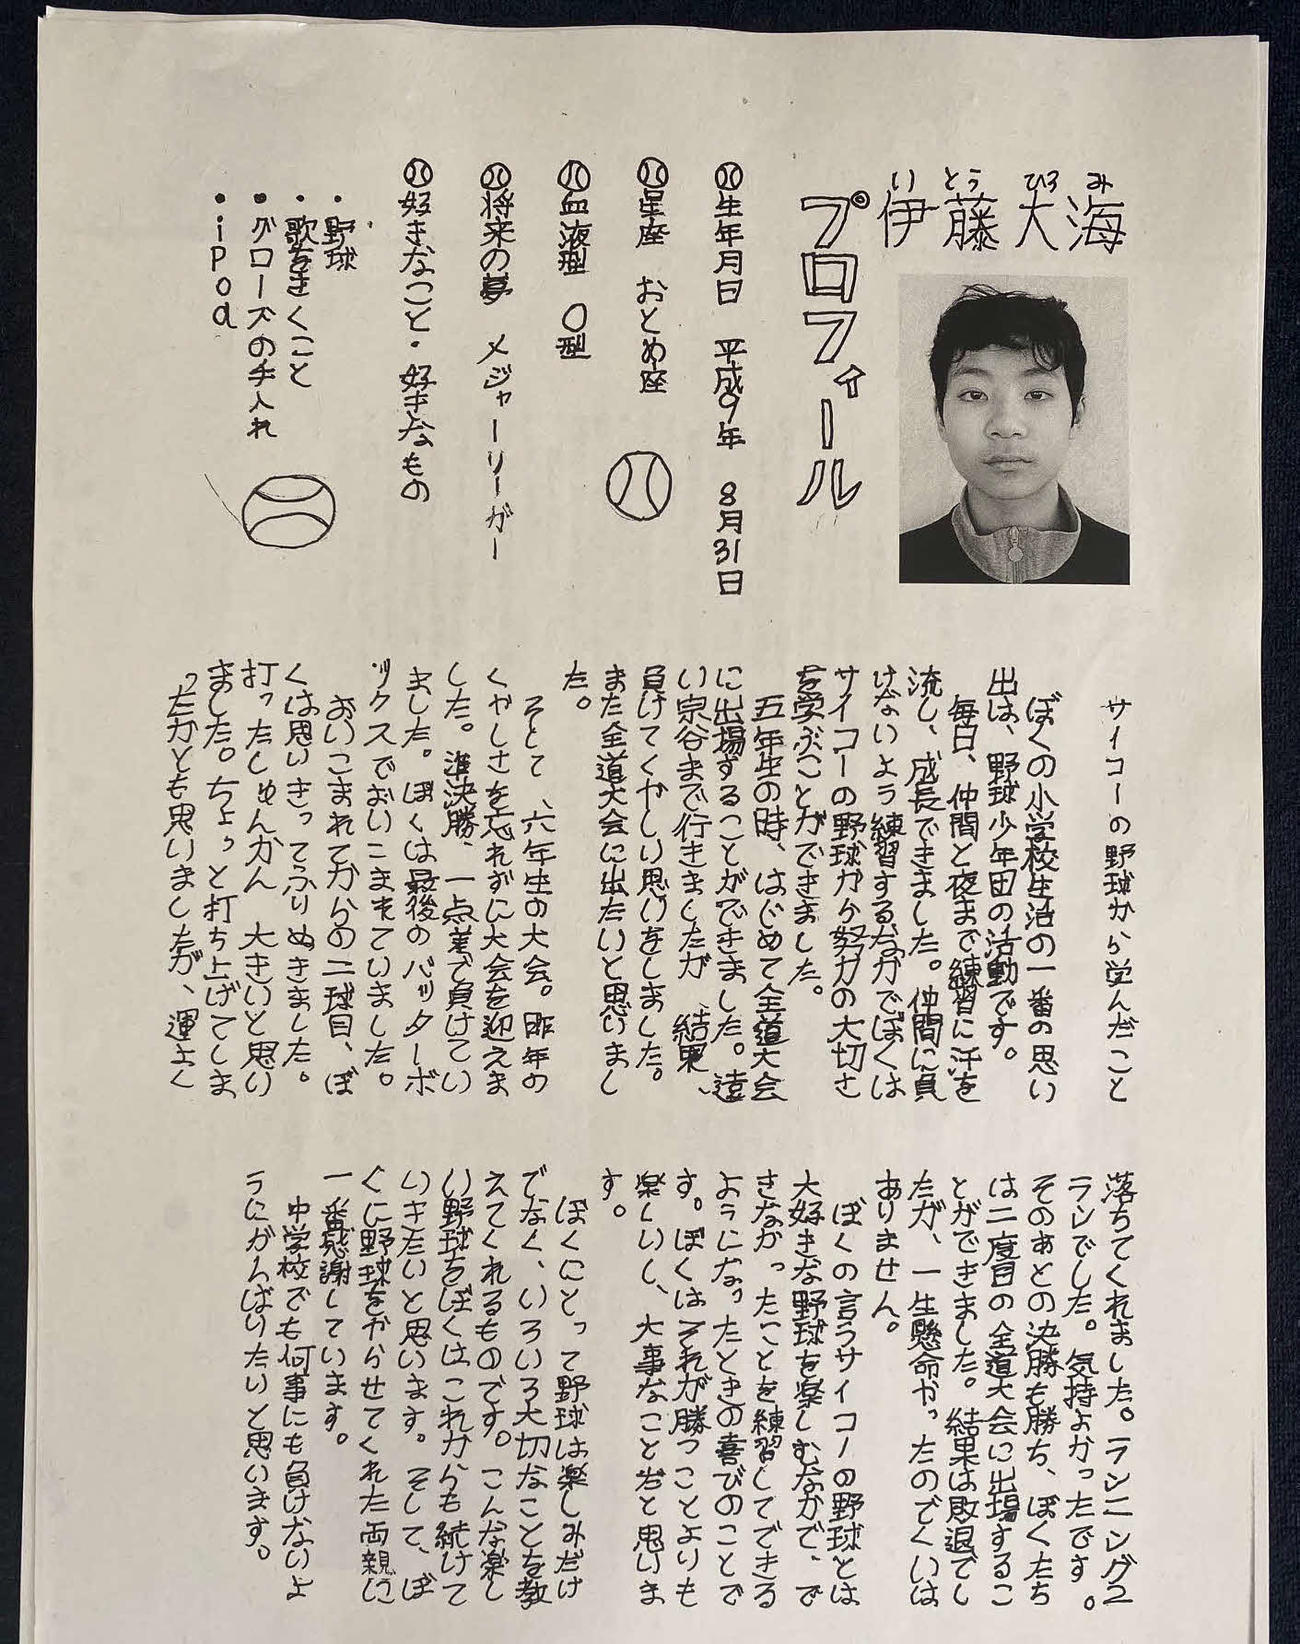 伊藤大海
いとうひろみ
プロフィール
生年月日 平成9年 8月31日
星座 おとめ座
血液型 O型
将来の夢 メジャーリーガー
好きなこと・好きなもの
・野球
・歌をきくこと
・グローブの手入れ
・iPod
サイコーの野球から学んだこと
ぼくの小学校生活の一番の思い
出は、野球少年団の活動です。
毎日、仲間と夜まで練習に汗を
流し、成長できました。仲間に負
けないよう練習するなかでぼくは
サイコーの野球から努力の大切さ
を学ぶことができました。
五年生の時、はじめて全道大会
に出場することができました。遠
い宗谷まで行きましたが、結果、
負けてくやしい思いをしました。
また全道大会に出たいと思いまし
た。
そして、六年生の大会。昨年の
くやしさを忘れずに大会を迎えま
した。準決勝、一点差で負けてい
ました。ぼくは最後のバッターボ
ックスでおいこまれていました。
おいこまれてからの二球目、ぼ
くは思いきってふりぬきました。
打ったしゅんかん 大きいと思い
ました。ちょっと打ち上げてしま
ったかとも思いましたが、運よく
落ちてくれました。ランニング2
ランでした。気持よかったです。
そのあとの決勝も勝ち、ぼくたち
は二度目の全道大会に出場するこ
とができました。結果は敗退でし
たが、一生懸命やったのでくいは
ありません。
ぼくの言うサイコーの野球とは
大好きな野球を楽しむなかで、で
きなかったことを練習してできる
ようになったときの喜びのことで
す。ぼくはそれが勝つことよりも
楽しいし、大事なことだと思いま
す。
ぼくにとって野球は楽しみだけ
でなく、いろいろ大切なことを教
えてくれるものです。こんな楽し
い野球をぼくはこれからも続けて
いきたいと思います。そして、ぼ
くに野球をやらせてくれた両親に
一番感謝しています。
中学校でも何事にも負けないよ
うにがんばりたいと思います。